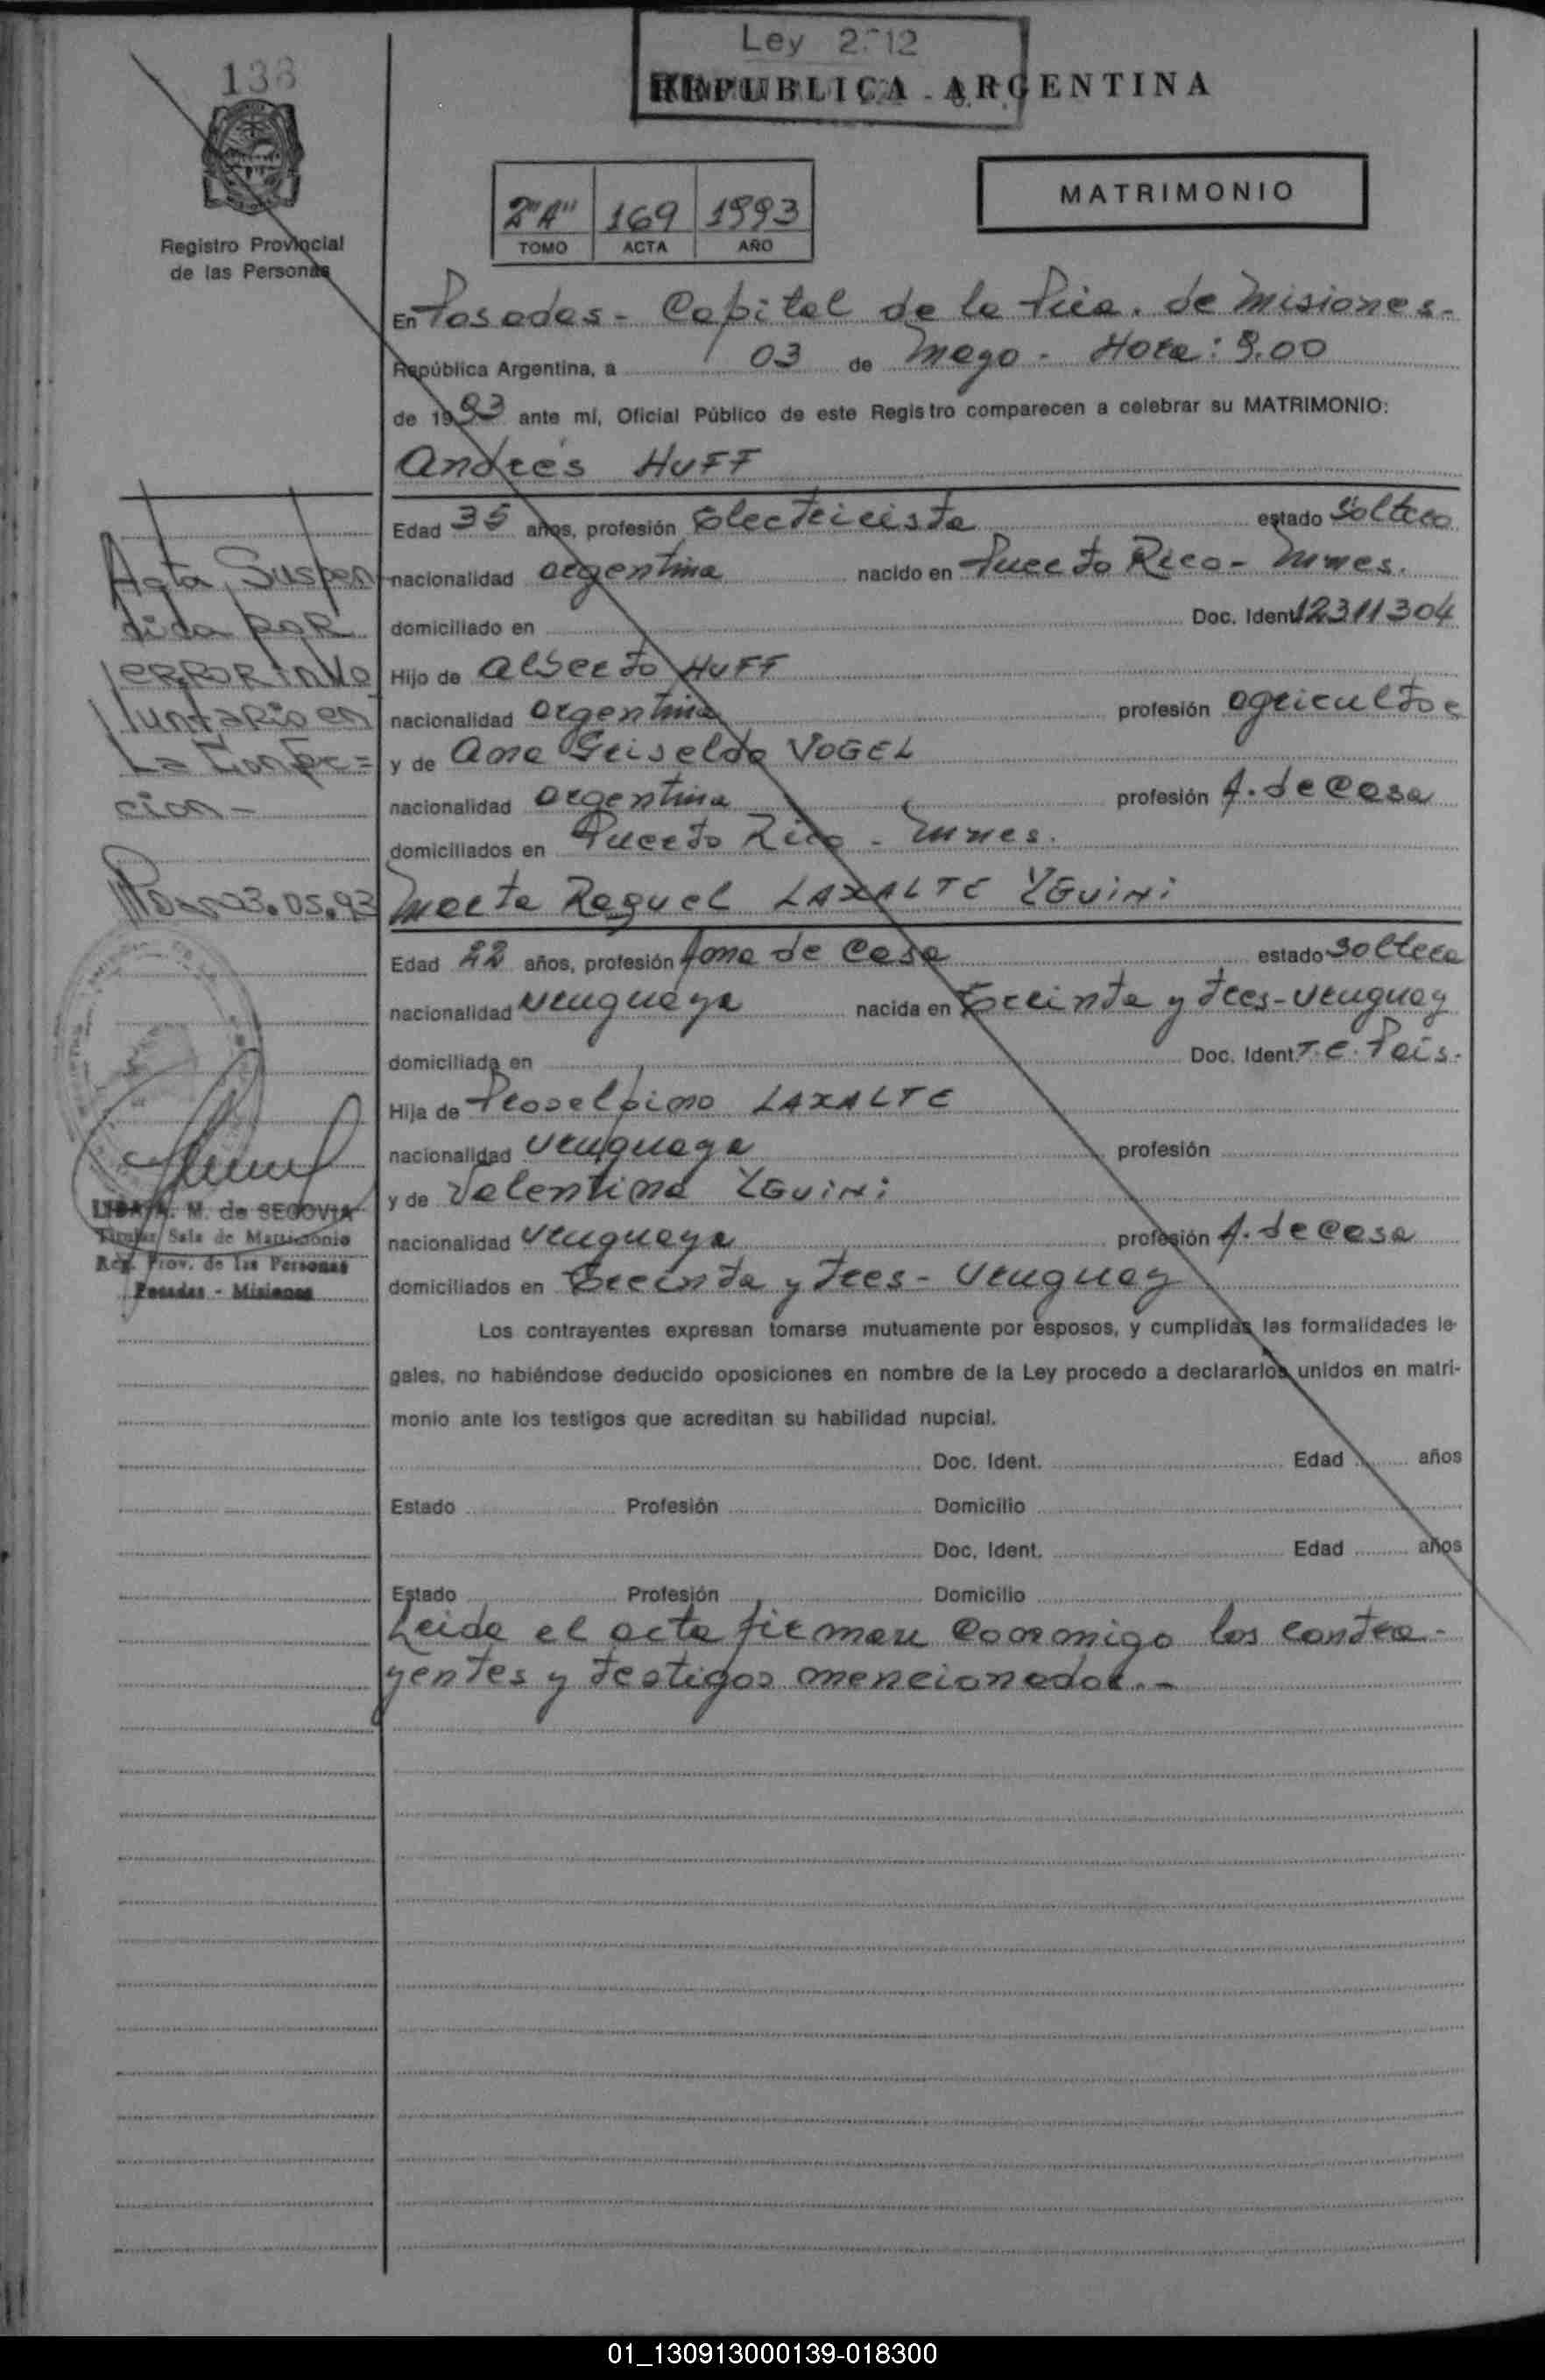 Ley 2712
REPUBLICA ARGENTINA
138
MATRIMONIO
2"A" 169 1993
TOMO ACTA AÑO
Registro Provincial
de las Personas
En Posadas - Capital de la Pcia. de Misiones -
República Argentina, a 03 de Mayo - Hora: 9.00
de 1993 ante mí, Oficial Público de este Registro comparecen a celebrar su MATRIMONIO:
Andrés HUFF
Edad 35 años, profesión Electricista estado Soltero
nacionalidad argentina nacido en Puerto Rico - Mnes.
domiciliado en Doc. Ident. 12311304
Hijo de Alberto HUFF
nacionalidad argentina profesión agricultor
y de Ana Griselda VOGEL
nacionalidad argentina profesión A. de Casa
domiciliados en Puerto Rico - Mnes.
Acta Suspen
dida por
error invo
luntario en
La Confec=
cion -
03.05.93
Marta Raquel LAXALTE YGUINI
Edad 22 años, profesión Ama de Casa estado soltera
nacionalidad uruguaya nacida en Treinta y tres - Uruguay
domiciliada en Doc. Ident. T.C. País.
Hija de Proselpino LAXALTE
nacionalidad uruguaya profesión
y de Valentina YGUINI
nacionalidad uruguaya profesión A. de Casa
domiciliados en Treinta y tres - Uruguay
M. de SEGOVIA
Titular Sala de Matrimonio
Reg. Prov. de las Personas
Posadas - Misiones
Los contrayentes expresan tomarse mutuamente por esposos, y cumplidas las formalidades le-
gales, no habiéndose deducido oposiciones en nombre de la Ley procedo a declararlos unidos en matri-
monio ante los testigos que acreditan su habilidad nupcial.
Doc. Ident. Edad años
Estado Profesión Domicilio
Doc. Ident. Edad años
Estado Profesión Domicilio
Leida el acta firman conmigo los contra-
yentes y testigos mencionados.-
01_130913000139-018300